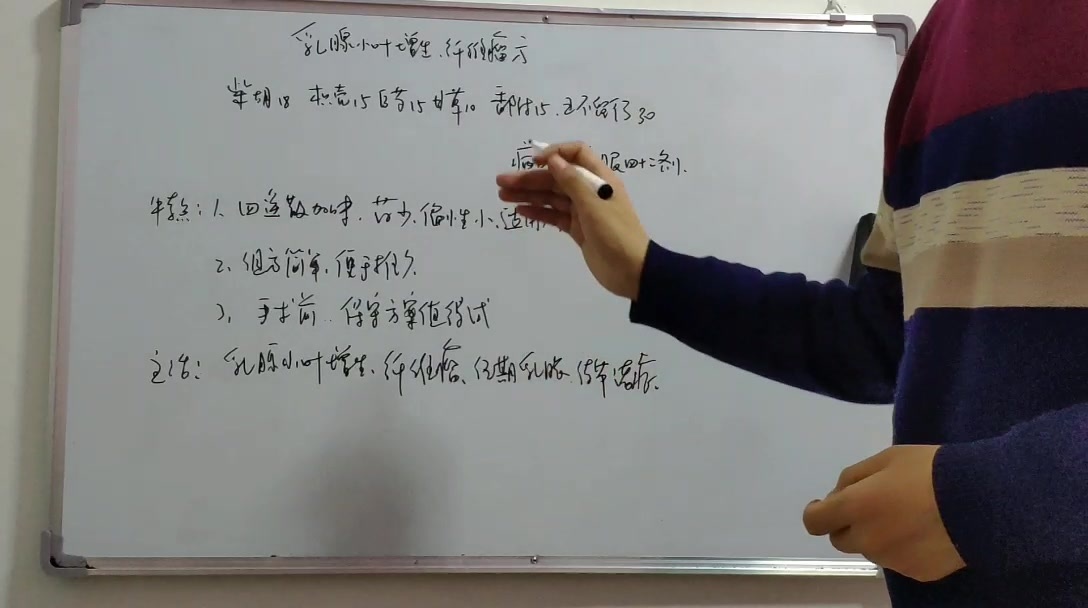 乳腺小叶增生.纤维瘤方
柴胡18 枳壳15 白芍15 甘草10 香附15.王不留行30
服四十二剂.
特点:1、四逆散加味.药少.偏性小.适用
2、组方简单.便于推广.
3、手术前.保守方案值得试
主治:乳腺小叶增生、纤维瘤、经期乳胀